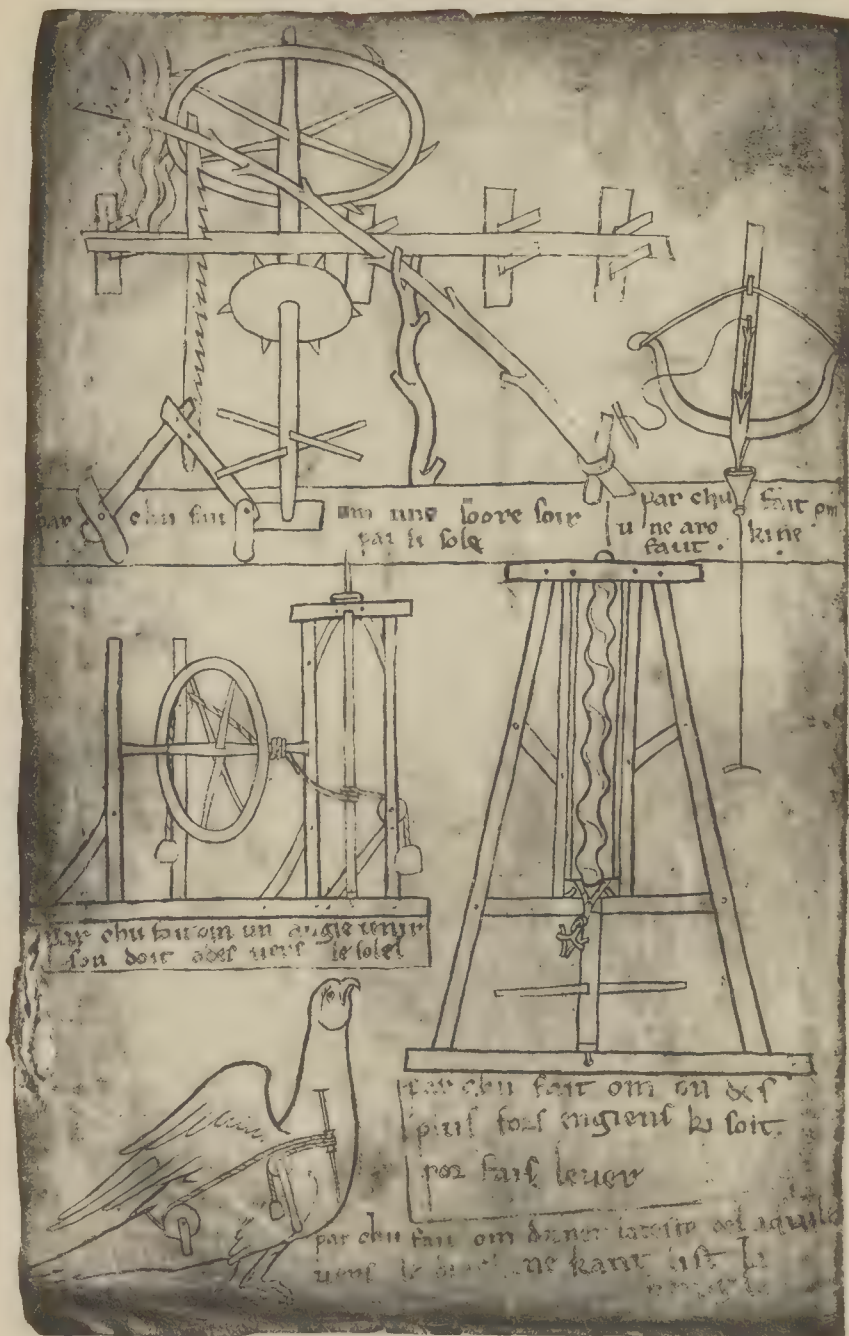 par chu fait om une soore soir
par li sole
par chu fait om
u ne arc kine
faut.
par chu fait om un angle tenir
son doit ades uers le solel
par chu fait om on des
plus fors engiens ki soit
por fais leuer
par chu fait om dorner la teste del aquile
uers le kant list